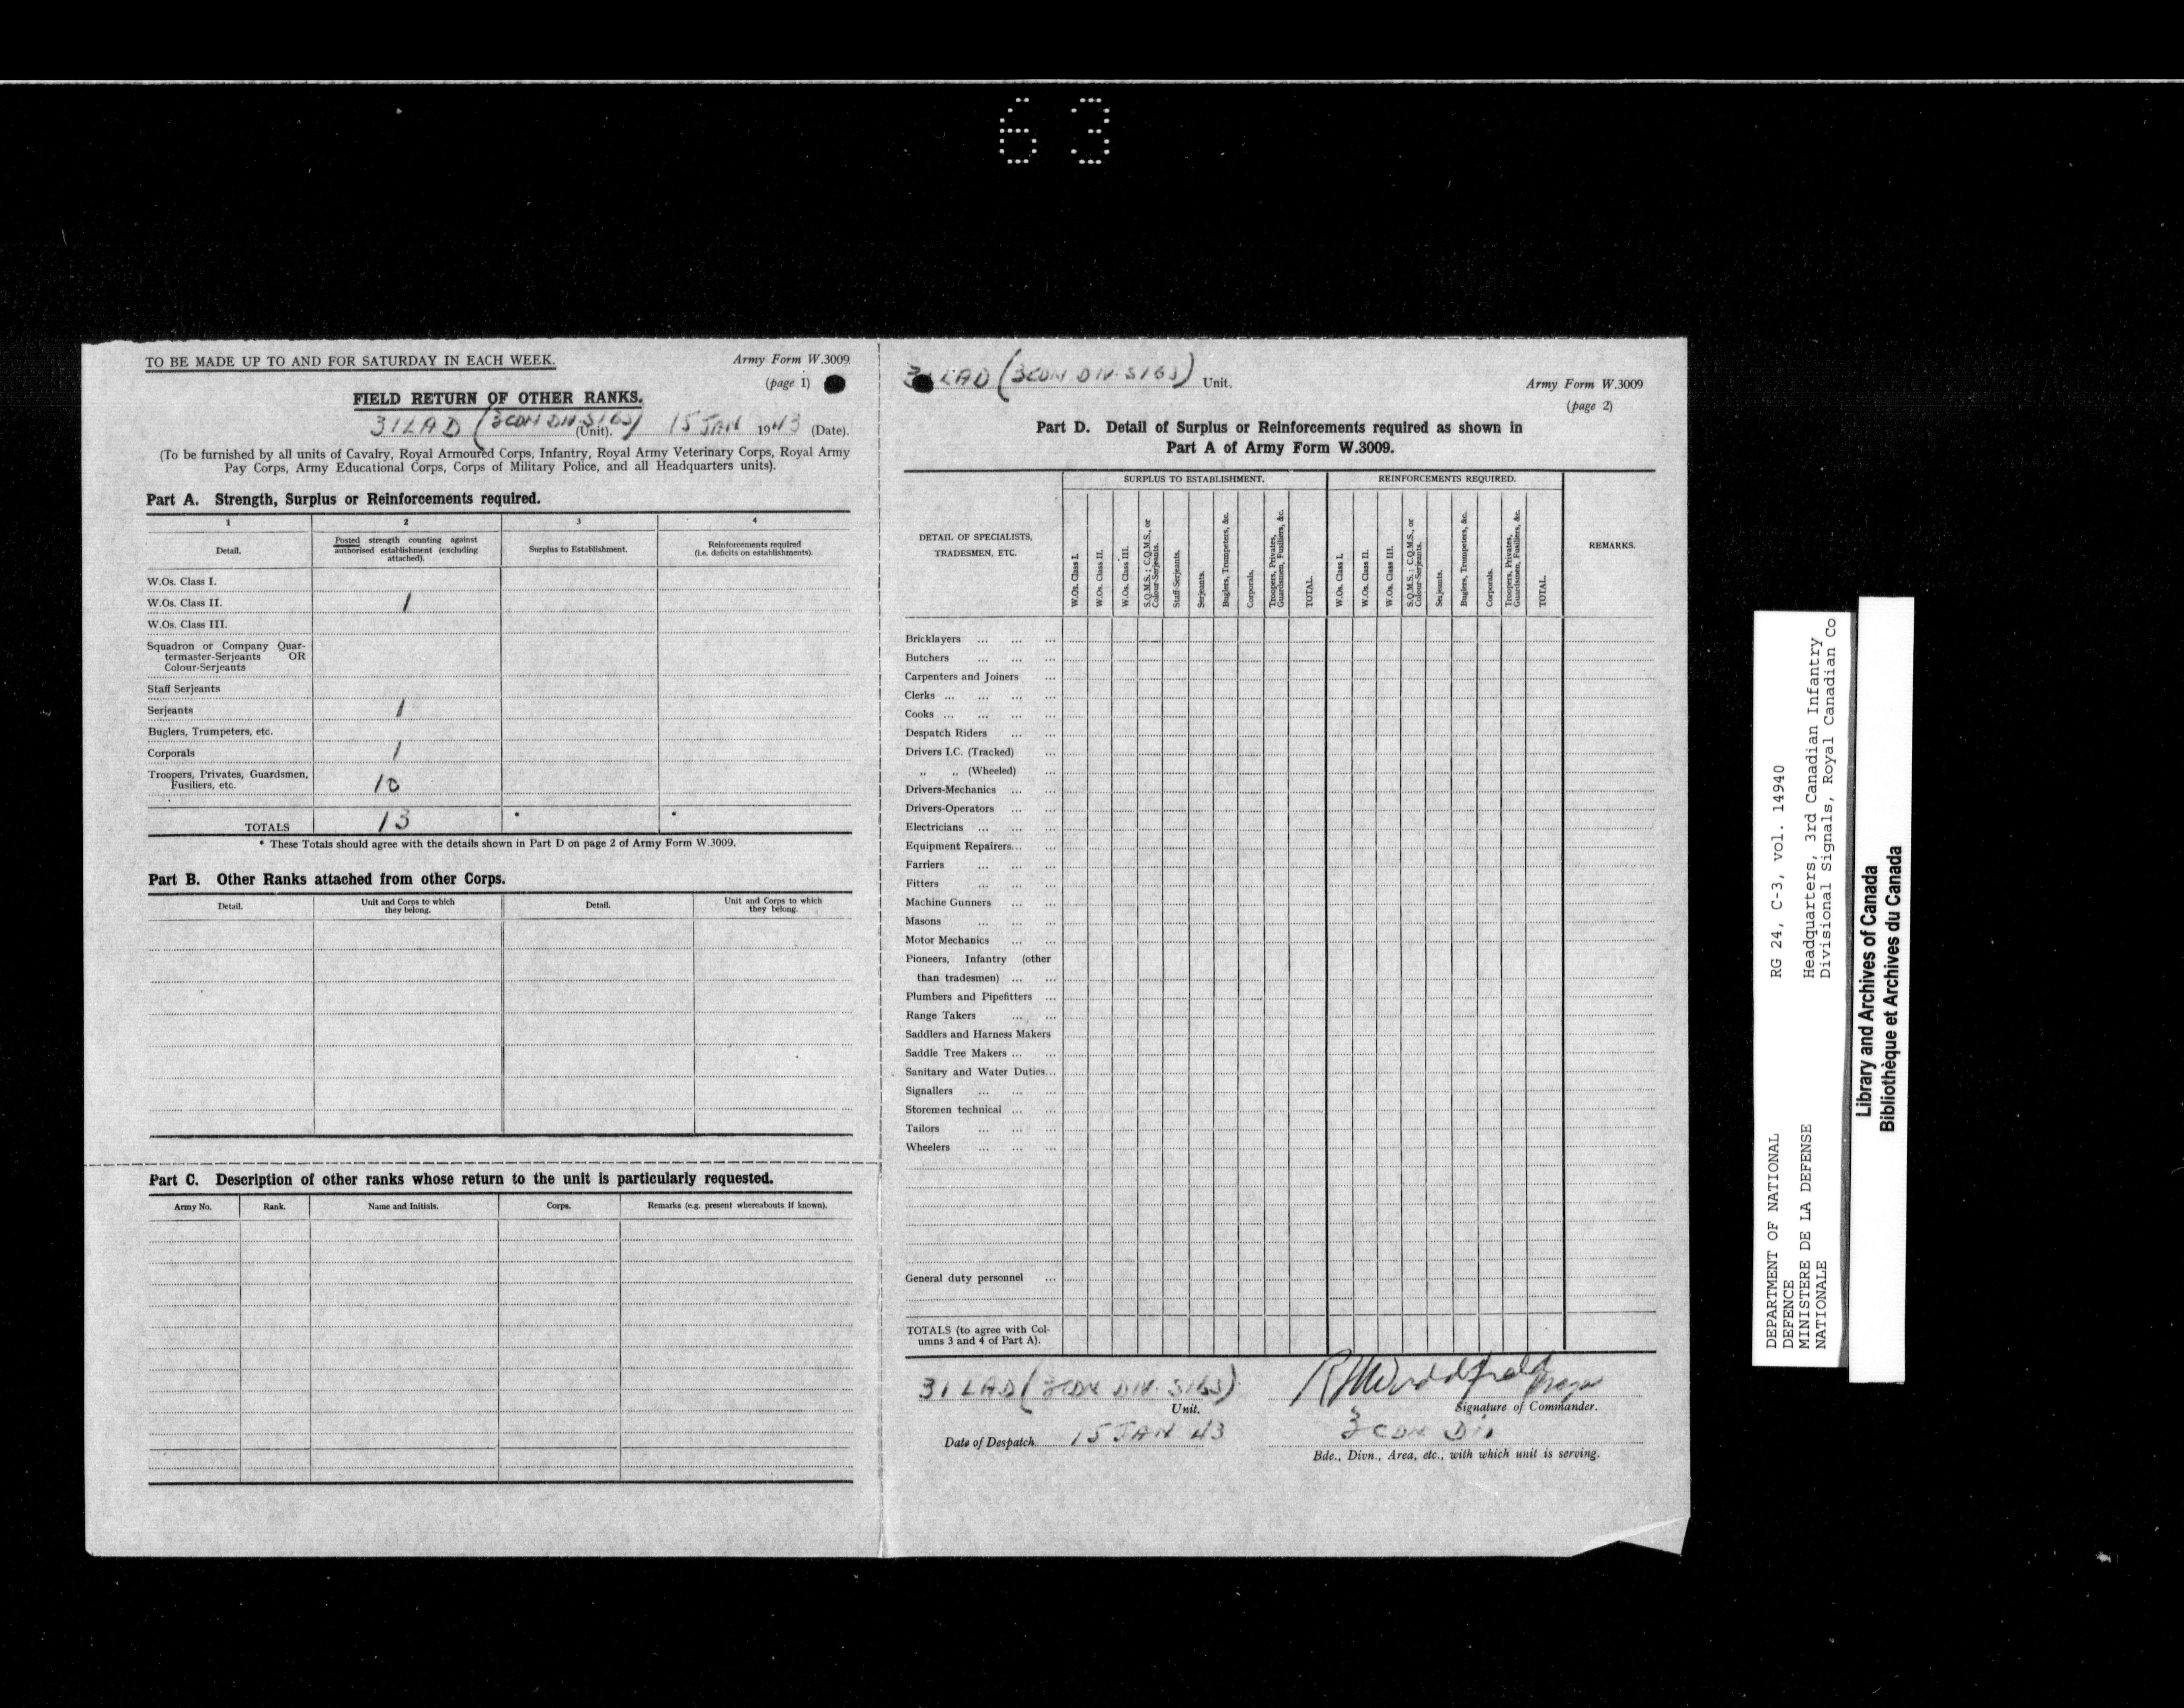 63
TO BE MADE UP TO AND FOR SATURDAY IN EACH WEEK.
Army Form W.3009
(page 1)
FIELD RETURN OF OTHER RANKS.
31 LAD (3 CDN DIV. SIGS) (Unit). 15 JAN 1943 (Date).
(To be furnished by all units of Cavalry, Royal Armoured Corps, Infantry, Royal Army Veterinary Corps, Royal Army
Pay Corps, Army Educational Corps, Corps of Military Police, and all Headquarters units).
Part A. Strength, Surplus or Reinforcements required.
1 2 3 4
Detail.
Posted strength counting against
authorised establishment (excluding
attached).
Surplus to Establishment.
Reinforcements required
(i.e. deficits on establishments).
W.Os. Class I.
W.Os. Class II. 1
W.Os. Class III.
Squadron or Company Quar-
termaster-Serjeants OR
Colour-Serjeants
Staff Serjeants
Serjeants 1
Buglers, Trumpeters, etc.
Corporals 1
Troopers, Privates, Guardsmen,
Fusiliers, etc. 10
TOTALS 13 * *
* These Totals should agree with the details shown in Part D on page 2 of Army Form W.3009.
Part B. Other Ranks attached from other Corps.
Detail.
Unit and Corps to which
they belong.
Detail.
Unit and Corps to which
they belong.
Part C. Description of other ranks whose return to the unit is particularly requested.
Army No. Rank. Name and Initials. Corps. Remarks (e.g. present whereabouts if known).
31 LAD (3 CDN DIV. SIGS) Unit.
Army Form W.3009
(page 2)
Part D. Detail of Surplus or Reinforcements required as shown in
Part A of Army Form W.3009.
DETAIL OF SPECIALISTS,
TRADESMEN, ETC.
SURPLUS TO ESTABLISHMENT.
W.Os. Class I.
W.Os. Class II.
W.Os. Class III.
S.Q.M.S.; C.Q.M.S., or
Colour-Serjeants.
Staff-Serjeants.
Serjeants.
Buglers, Trumpeters, &c.
Corporals.
Troopers, Privates,
Guardsmen, Fusiliers, &c.
TOTAL.
REINFORCEMENTS REQUIRED.
W.Os. Class I.
W.Os. Class II.
W.Os. Class III.
S.Q.M.S.; C.Q.M.S., or
Colour-Serjeants.
Serjeants.
Buglers, Trumpeters, &c.
Corporals.
Troopers, Privates,
Guardsmen, Fusiliers, &c.
TOTAL.
REMARKS.
Bricklayers ... ... ...
Butchers ... ... ...
Carpenters and Joiners ...
Clerks ... ... ... ...
Cooks ... ... ... ...
Despatch Riders ... ...
Drivers I.C. (Tracked) ...
„ „ (Wheeled) ...
Drivers-Mechanics ... ...
Drivers-Operators ... ...
Electricians ... ... ...
Equipment Repairers... ...
Farriers ... ... ...
Fitters ... ... ...
Machine Gunners ... ...
Masons ... ... ...
Motor Mechanics ... ...
Pioneers, Infantry (other
than tradesmen) ... ...
Plumbers and Pipefitters ...
Range Takers ... ...
Saddlers and Harness Makers
Saddle Tree Makers ... ...
Sanitary and Water Duties...
Signallers ... ... ...
Storemen technical ... ...
Tailors ... ... ...
Wheelers ... ... ...
General duty personnel ...
TOTALS (to agree with Col-
umns 3 and 4 of Part A).
31 LAD (3 CDN DIV. SIGS)
Unit.
Major
Signature of Commander.
Date of Despatch 15 JAN 43
3 CDN Div
Bde., Divn., Area, etc., with which unit is serving.
DEPARTMENT OF NATIONAL
DEFENCE
MINISTERE DE LA DEFENSE
NATIONALE
RG 24, C-3, vol. 14940
Headquarters, 3rd Canadian Infantry
Divisional Signals, Royal Canadian Co
Library and Archives of Canada
Bibliothèque et Archives du Canada